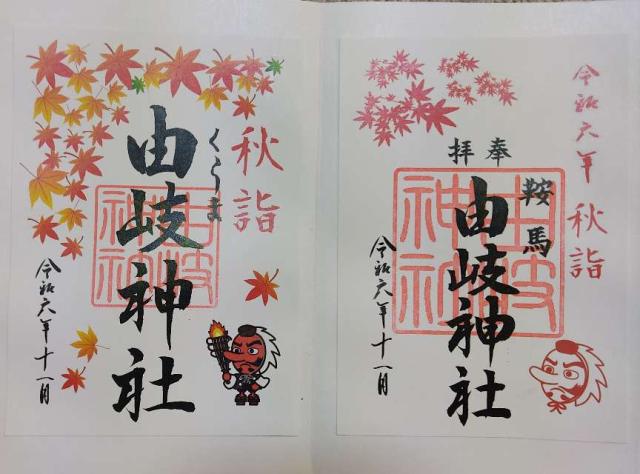 令和六年
秋詣
奉拝
鞍馬
由岐神社
由岐神社
令和六年十一月
秋詣
くらま
由岐神社
由岐神社
令和六年十一月